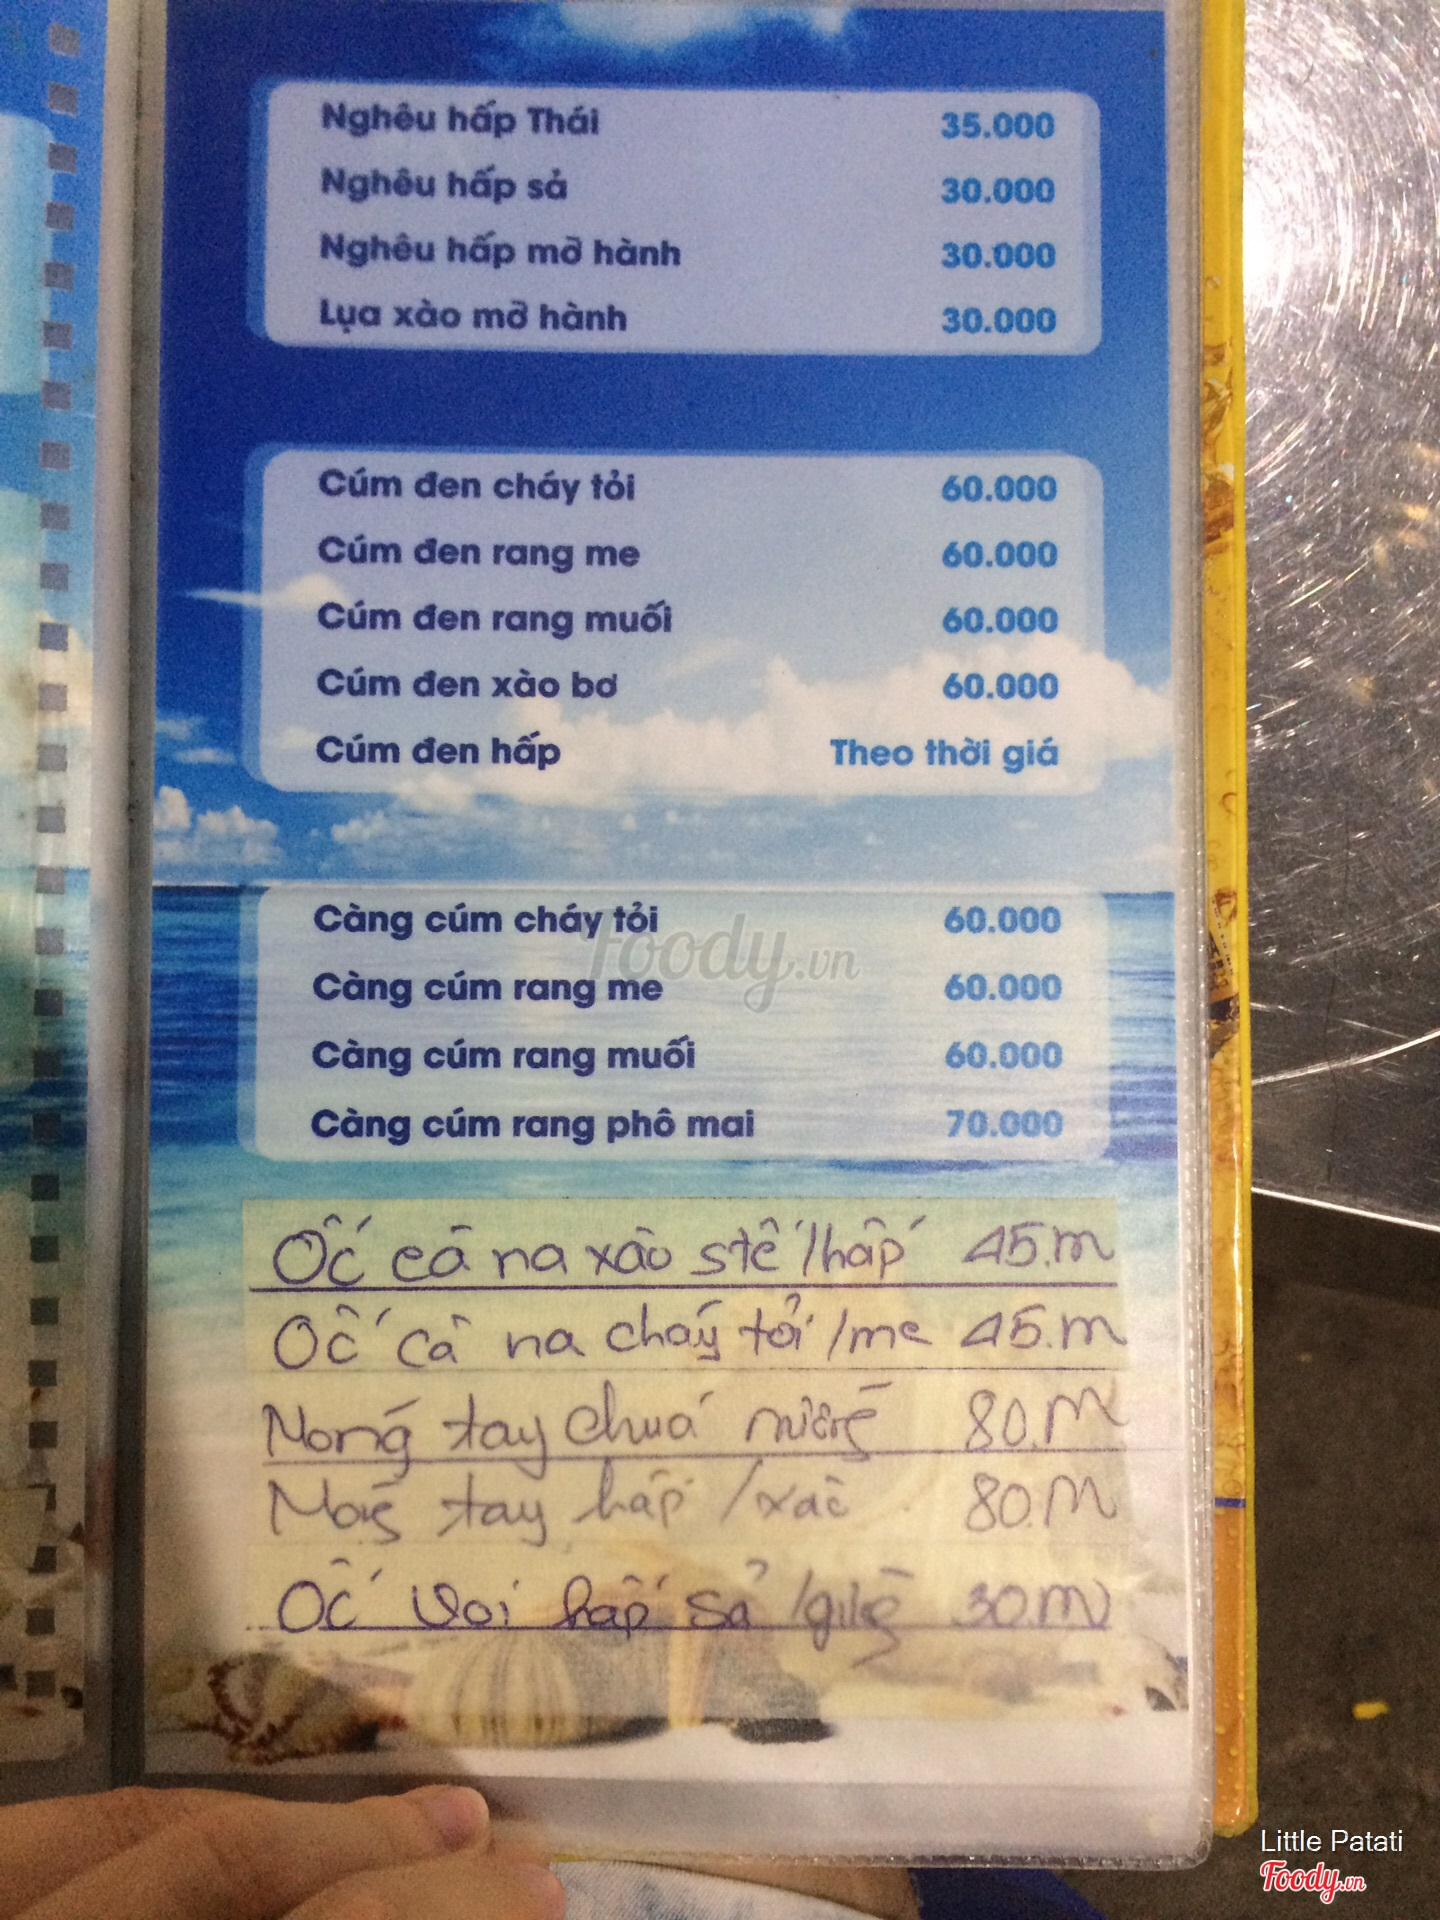 Nghêu hấp Thái 35.000
Nghêu hấp sả 30.000
Nghêu hấp mỡ hành 30.000
Lụa xào mỡ hành 30.000
Cúm đen cháy tỏi 60.000
Cúm đen rang me 60.000
Cúm đen rang muối 60.000
Cúm đen xào bơ 60.000
Cúm đen hấp Theo thời giá
Càng cúm cháy tỏi 60.000
Foody.vn
Càng cúm rang me 60.000
Càng cúm rang muối 60.000
Càng cúm rang phô mai 70.000
Ốc cà na xào stế/hấp 45.m
Ốc cà na cháy tỏi/me 45.m
Móng tay chuá nướng 80.m
Móng tay hấp/xào 80.m
Ốc voi hấp sả/gừng 30.m
Little Patati
Foody.vn